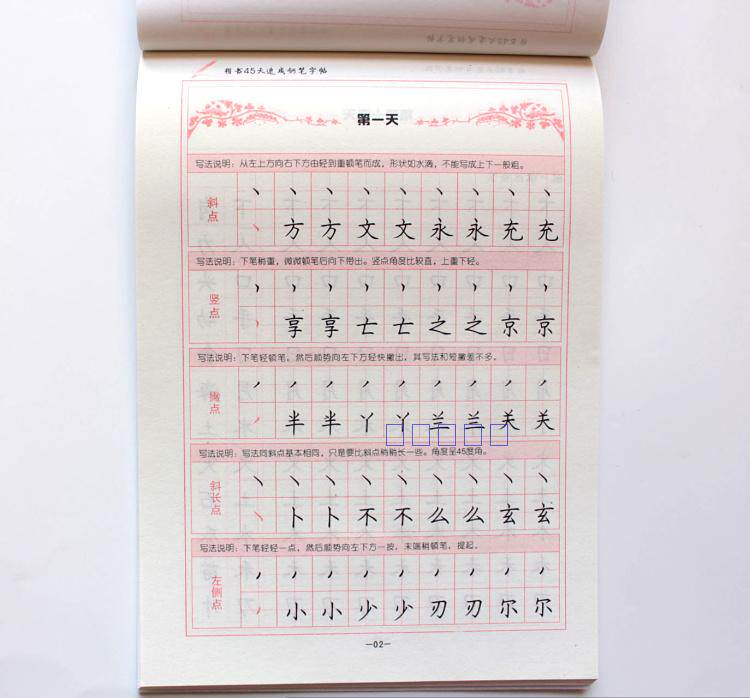 楷书45天速成钢笔字帖
第一天
写法说明：从左上方向右下方由轻到重顿笔而成，形状如水滴，不能写成上下一般粗。
斜点
丶 丶 丶 丶 丶 丶 丶 丶 丶
丶 方 方 文 文 永 永 充 充
写法说明：下笔稍重，微微顿笔后向下带出。竖点角度比较直，上重下轻。
竖点
享 享 士 士 之 之 京 京
写法说明：下笔轻顿笔。然后顺势向左下方轻快撇出，其写法和短撇差不多。
撇点
半 半 丫 丫 兰 兰 关 关
写法说明：写法同斜点基本相同，只是要比斜点稍稍长一些。角度呈45度角。
斜长点
卜 卜 不 不 么 么 玄 玄
写法说明：下笔轻轻一点，然后顺势向左下方一按，末端稍顿笔，提起。
左侧点
小 小 少 少 刃 刃 尔 尔
—02—